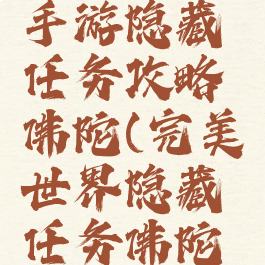 手游隐藏
任务攻略
佛陀(完美
世界隐藏
任务佛陀